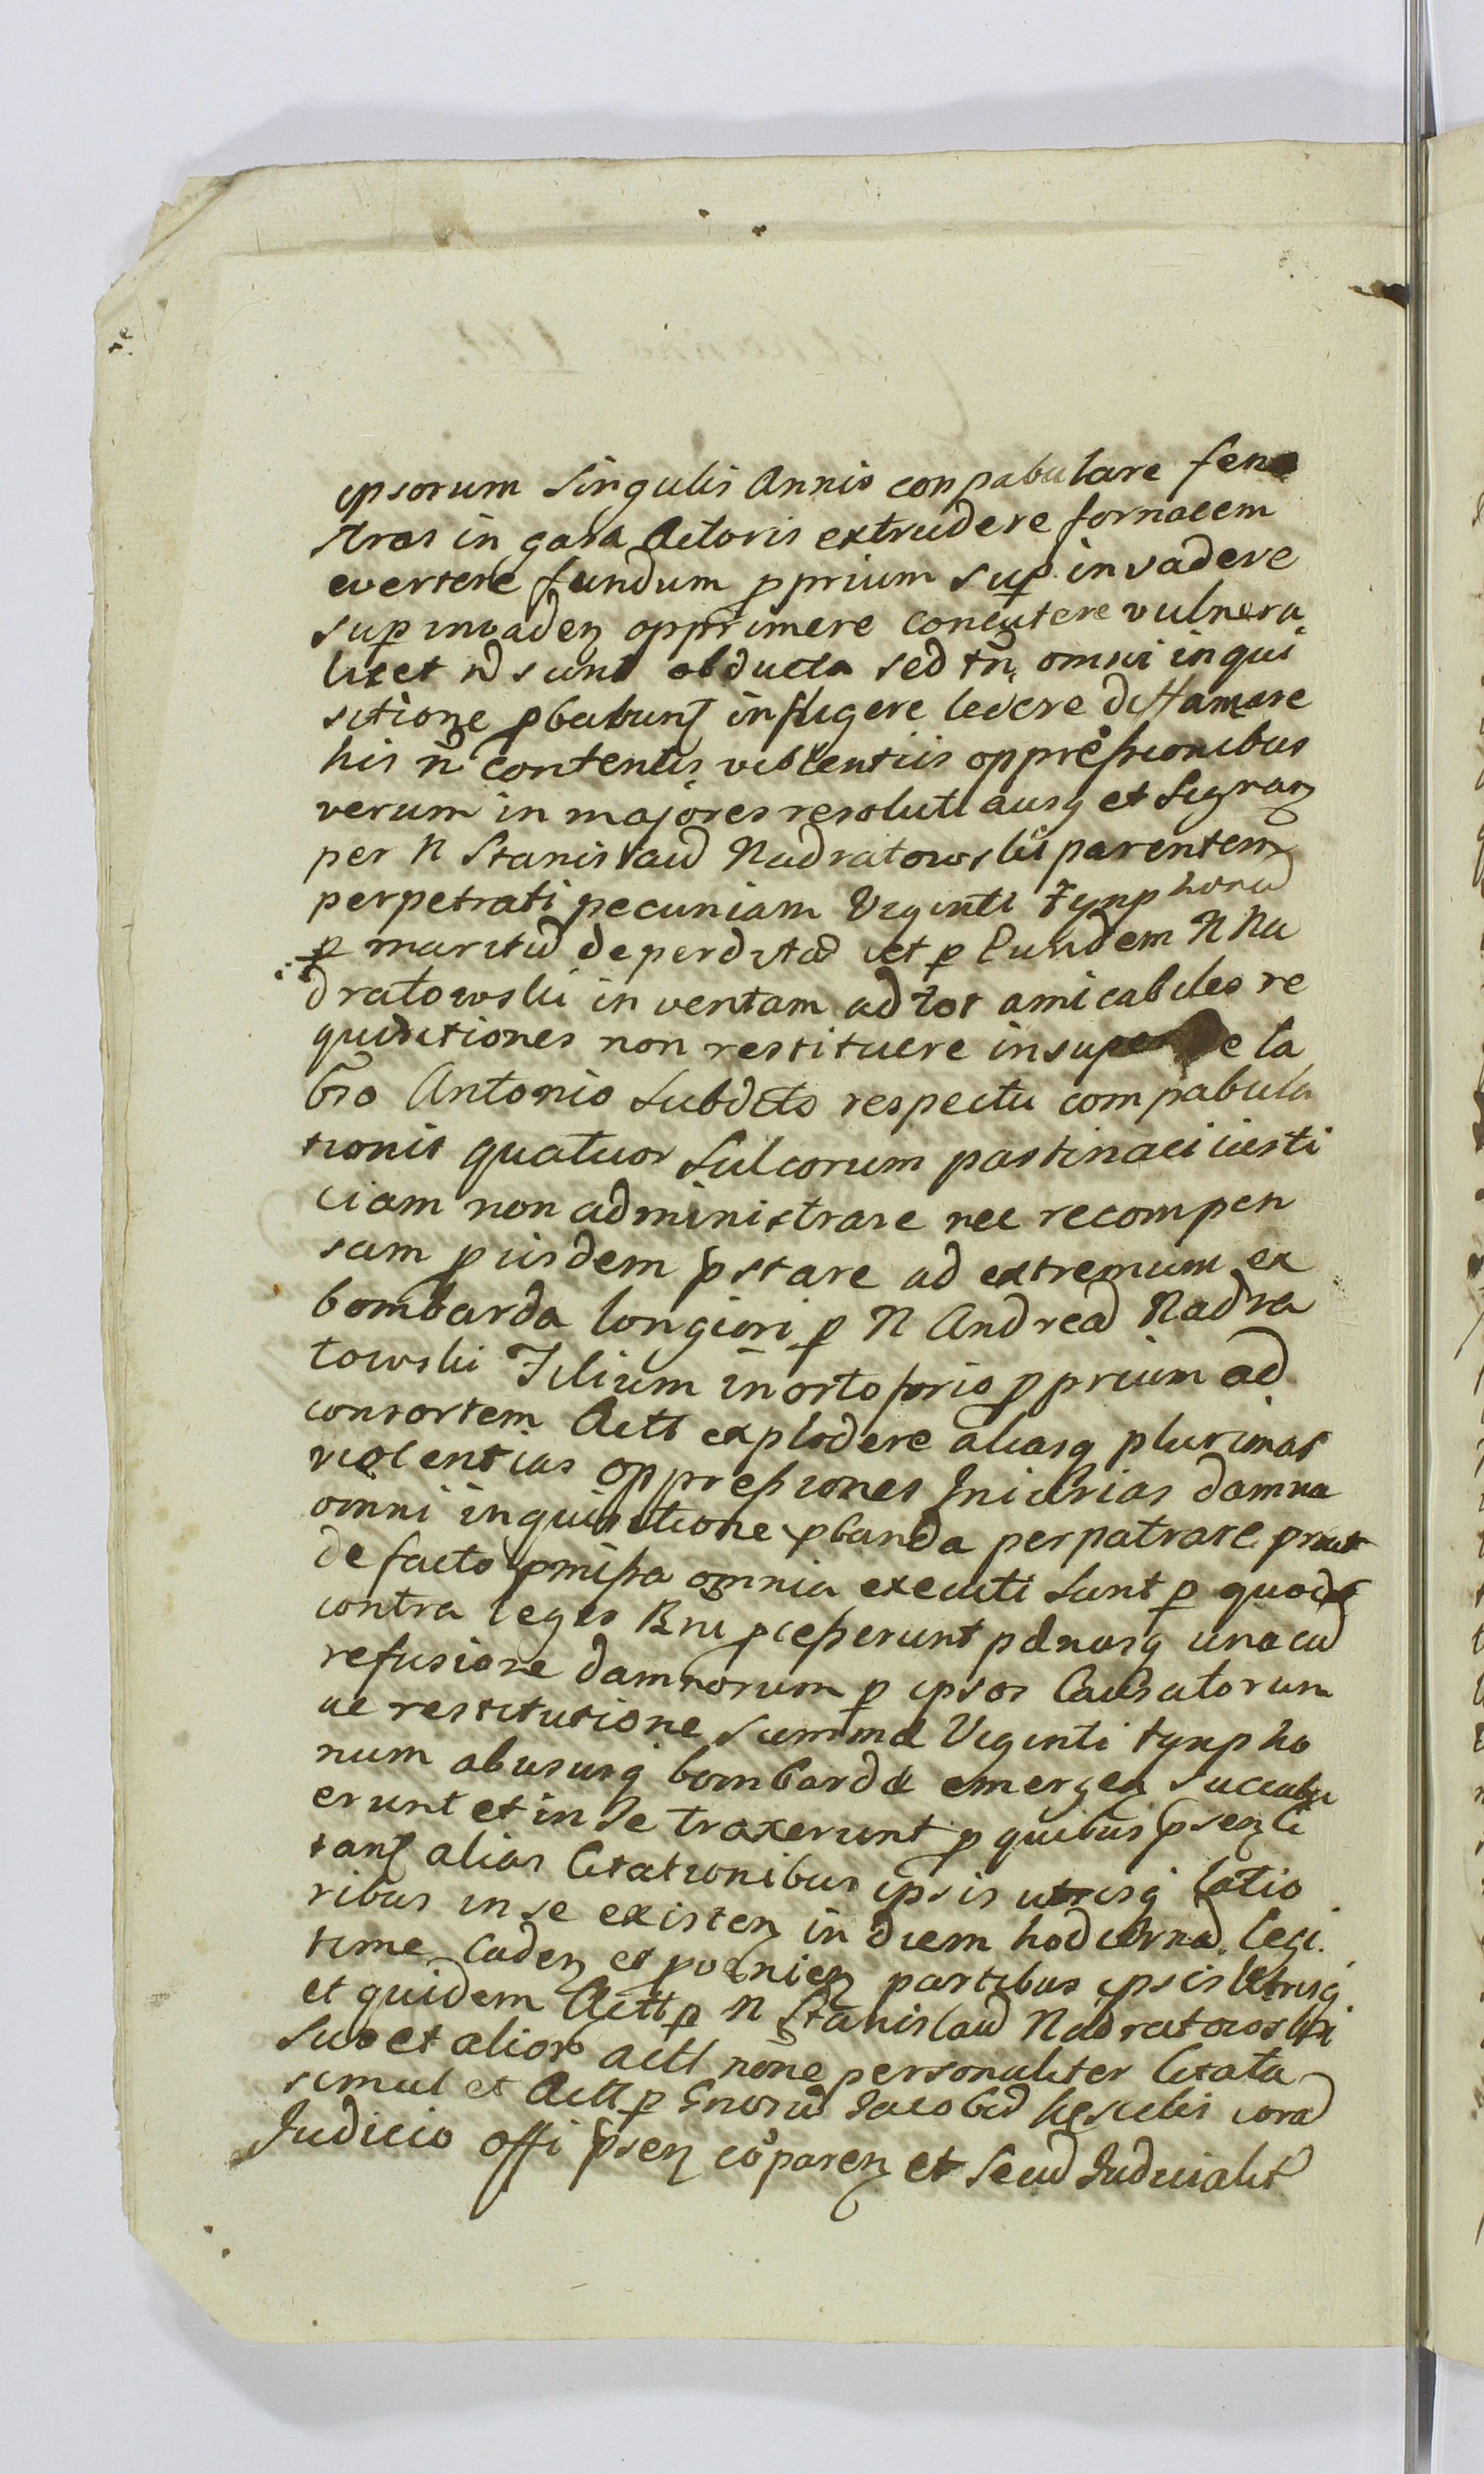 ipsorum Singulis Annis conpabulare fene
stras in gasa Actoris extrudere fornacem
evertere fundum pprium sup invadere
sup invaden opprimere concutere vulnera
licet n sunt obducta sed tn omni inqui
sitione pbabunt infligere ledere diffamare
his n contentis violentiis oppressionibus
verum in majores resoluti ausq et
per N Stanislau Nadratowski parentem
perpetrati pecuniam Viginti tynphonu
p maritu deperdita et p Eundem N Na
dratowski inventam ad tot amicabiles re
quisitiones non restituere insuper
Antonio Subdito respectu compabula
tionis quatuor Sulcorum pastinaci iusti
ciam non administrare nec recompen
sam p iisdem pstare ad extremum ex
bombarda longiori p N Andrea Nadra
towski Filium in orto pprium ad
consortem Actt explodere aliasq plurimas
violentias oppressiones Iniurias damna
omni inquisitione pbanda perpatrare prout
de facto pmissa omnia executi sunt p quod
contra leges Rni pcesserunt pænasq una cu
refusione damnorum p ipsos Causatorum
ac restitutione Summæ Viginti tynpho
num abususq bombardæ emergen succubu
erunt et in se traxerunt p quibus psen ci
tant alias Citationibus ipsis utrisq latio
ribus in se existen in diem hodierna legi
time Caden et pvenien partibus ipsis Utrisq
et quidem Actt p N Stanislau Nadratowski
suo et alior actt none personaliter Citata
simul et Actt p Jacobu cora
Judicio offi psen coparen et secu Judicialit